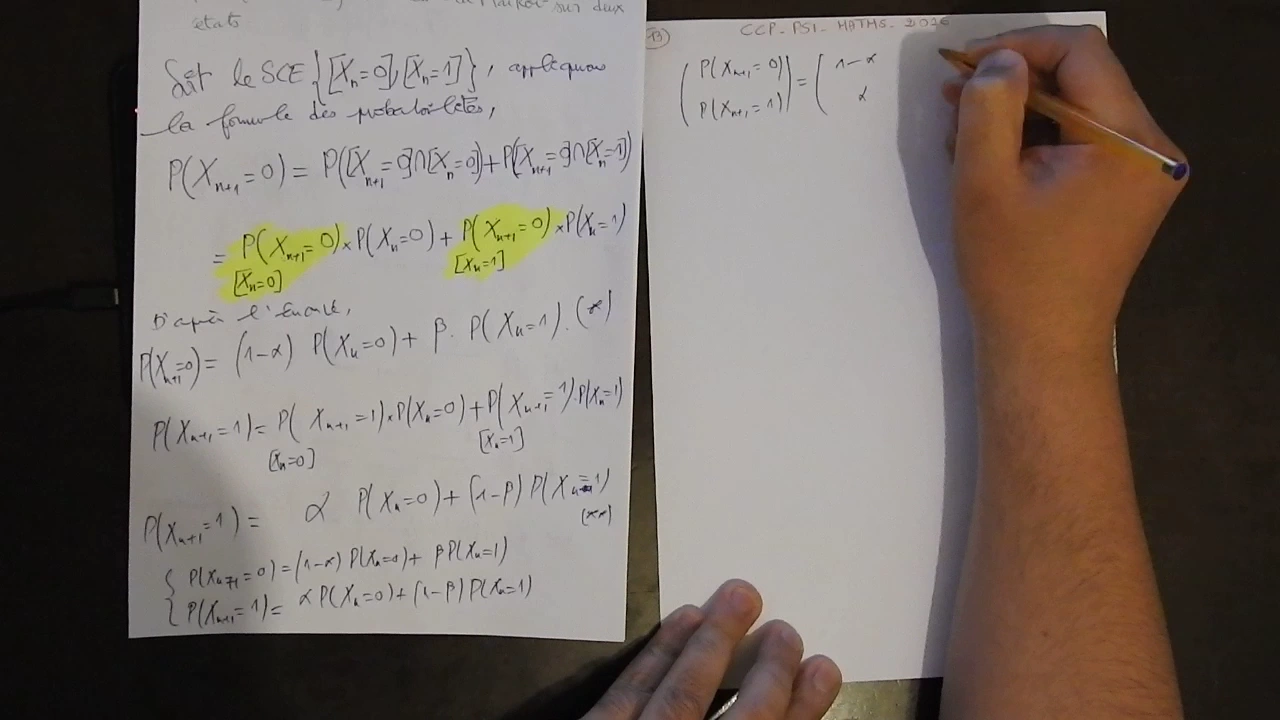 sur deux
états
Soit le SCE {[Xn=0],[Xn=1]}, appliquons
la formule des probabilités,
P(Xn+1=0) = P([Xn+1=0]∩[Xn=0])+P([Xn+1=0]∩[Xn=1])
= P(Xn+1=0)×P(Xn=0)+P(Xn+1=0)×P(Xn=1)
[Xn=0] [Xn=1]
D'après l'énoncé,
P(Xn+1=0) = (1-α) P(Xn=0)+ β. P(Xn=1). (*)
P(Xn+1=1)= P(Xn+1=1)×P(Xn=0)+P(Xn+1=1).P(Xn=1)
[Xn=0] [Xn=1]
P(Xn+1=1) = α P(Xn=0)+(1-β)P(Xn=1)
(**)
{ P(Xn+1=0)=(1-α)P(Xn=0)+ βP(Xn=1)
P(Xn+1=1)= αP(Xn=0)+(1-β)P(Xn=1)
13) CCP-PSI-MATHS-2026
(P(Xn+1=0)) = ( 1-α
P(Xn+1=1) α